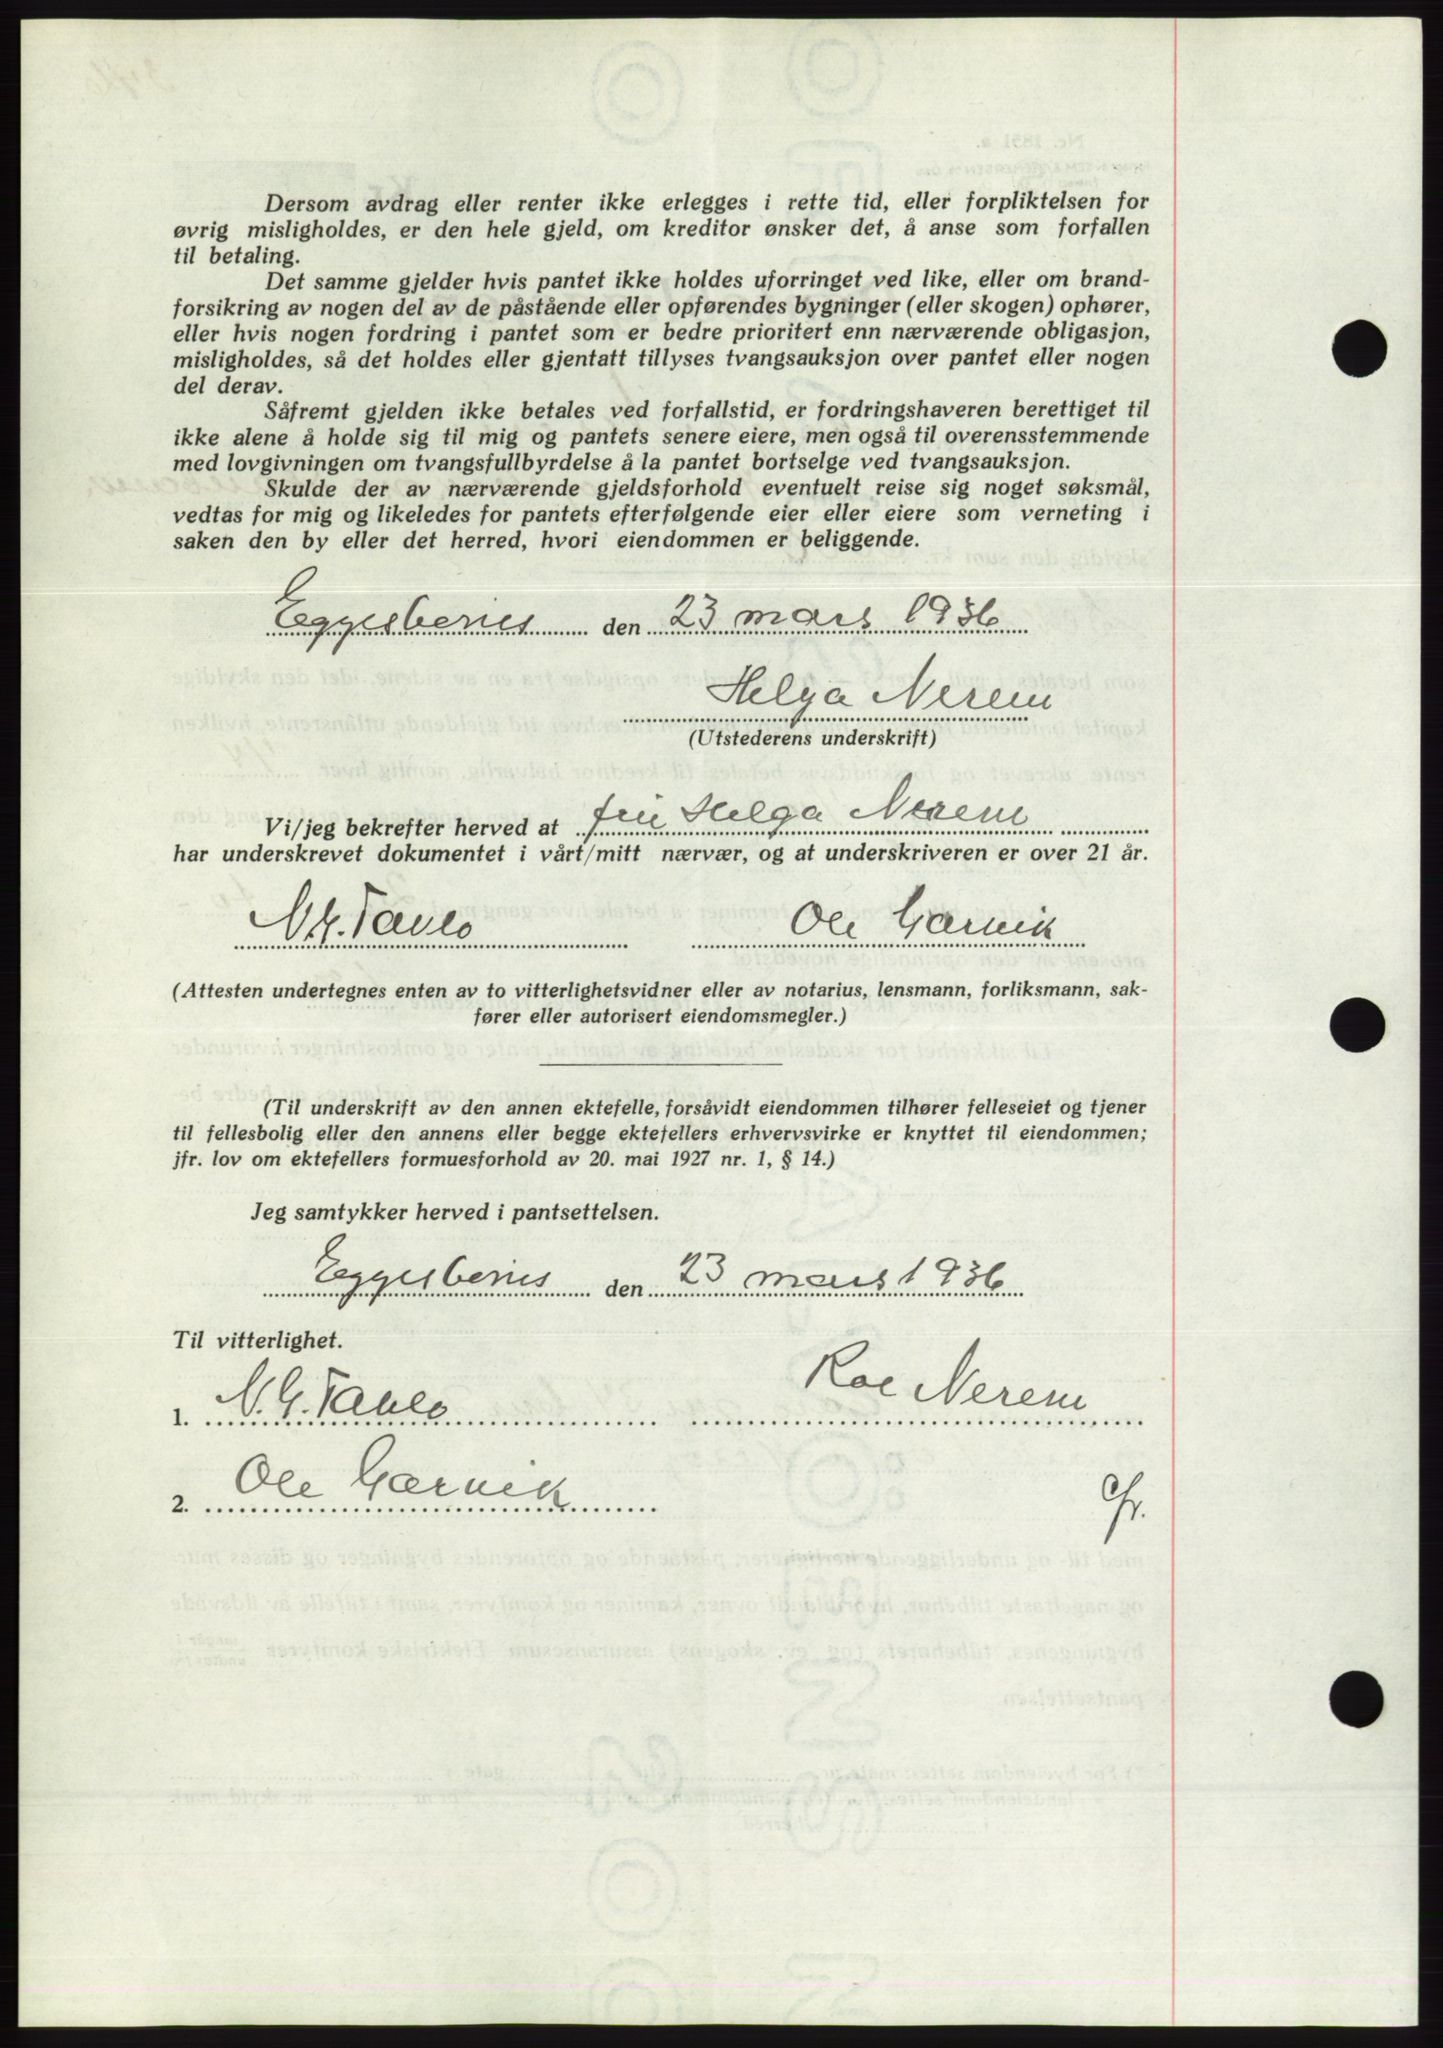 Dersom avdrag eller renter ikke erlegges i rette tid, eller forpliktelsen for
øvrig misligholdes, er den hele gjeld, om kreditor ønsker det, å anse som forfallen
til betaling.
Det samme gjelder hvis pantet ikke holdes uforringet ved like, eller om brand-
forsikring av nogen del av de påstående eller opførendes bygninger (eller skogen) ophører,
eller hvis nogen fordring i pantet som er bedre prioritert enn nærværende obligasjon,
misligholdes, så det holdes eller gjentatt tillyses tvangsauksjon over pantet eller nogen
del derav.
Såfremt gjelden ikke betales ved forfallstid, er fordringshaveren berettiget til
ikke alene å holde sig til mig og pantets senere eiere, men også til overensstemmende
med lovgivningen om tvangsfullbyrdelse å la pantet bortselge ved tvangsauksjon.
Skulde der av nærværende gjeldsforhold eventuelt reise sig noget søksmål,
vedtas for mig og likeledes for pantets efterfølgende eier eller eiere som verneting i
saken den by eller det herred, hvori eiendommen er beliggende.
Eggesbønes den 23 mars 1936
Helga Nerem
(Utstederens underskrift)
Vi/jeg bekrefter herved at fru Helga Nerem
har underskrevet dokumentet i vårt/mitt nærvær, og at underskriveren er over 21 år.
N.G. Taule Ole Garvik
(Attesten undertegnes enten av to vitterlighetsvidner eller av notarius, lensmann, forliksmann, sak-
fører eller autorisert eiendomsmegler.)
(Til underskrift av den annen ektefelle, forsåvidt eiendommen tilhører felleseiet og tjener
til fellesbolig eller den annens eller begge ektefellers erhvervsvirke er knyttet til eiendommen;
jfr. lov om ektefellers formuesforhold av 20. mai 1927 nr. 1, § 14.)
Jeg samtykker herved i pantsettelsen.
Eggesbønes den 23 mars 1936
Til vitterlighet.
1. N.G. Taule Roe Nerem
2. Ole Garvik